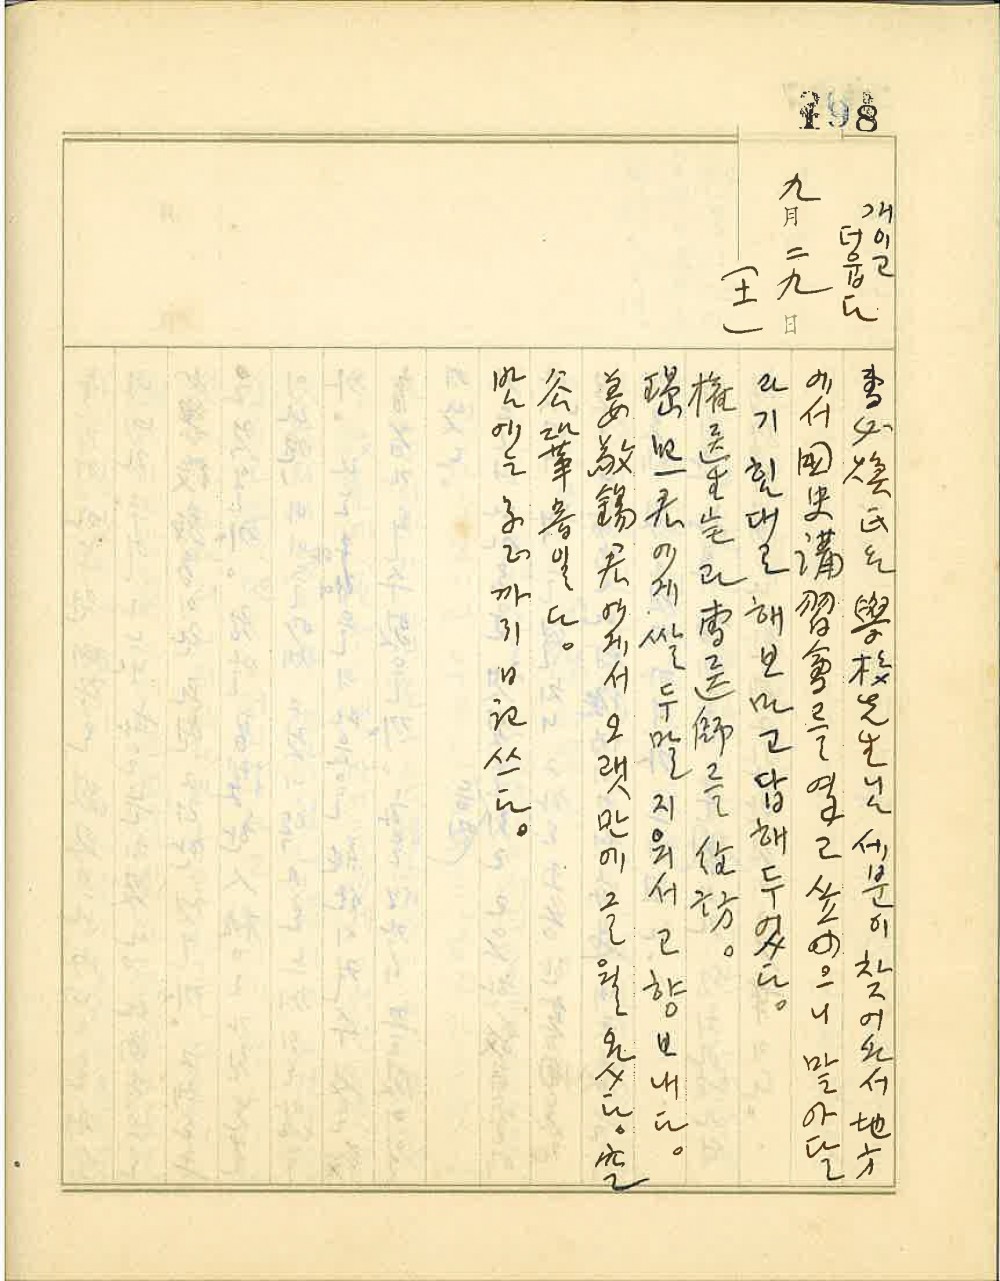 198
개이고
더웁다
九月二九日
(土)
李必煥氏와 學校先生님 세분이 찾어와서 地方
에서 國史講習會를 열고 싶으니 말아달
라기 힘대로 해보마고 답해 두었다。
權医生宅과 李医師를 往訪。
君에게 쌀 두말 지워서 고향 보내다。
姜敬錫君에게서 오랫만에 글월 왔다。
다。
밤에는 까지 日記 쓰다。